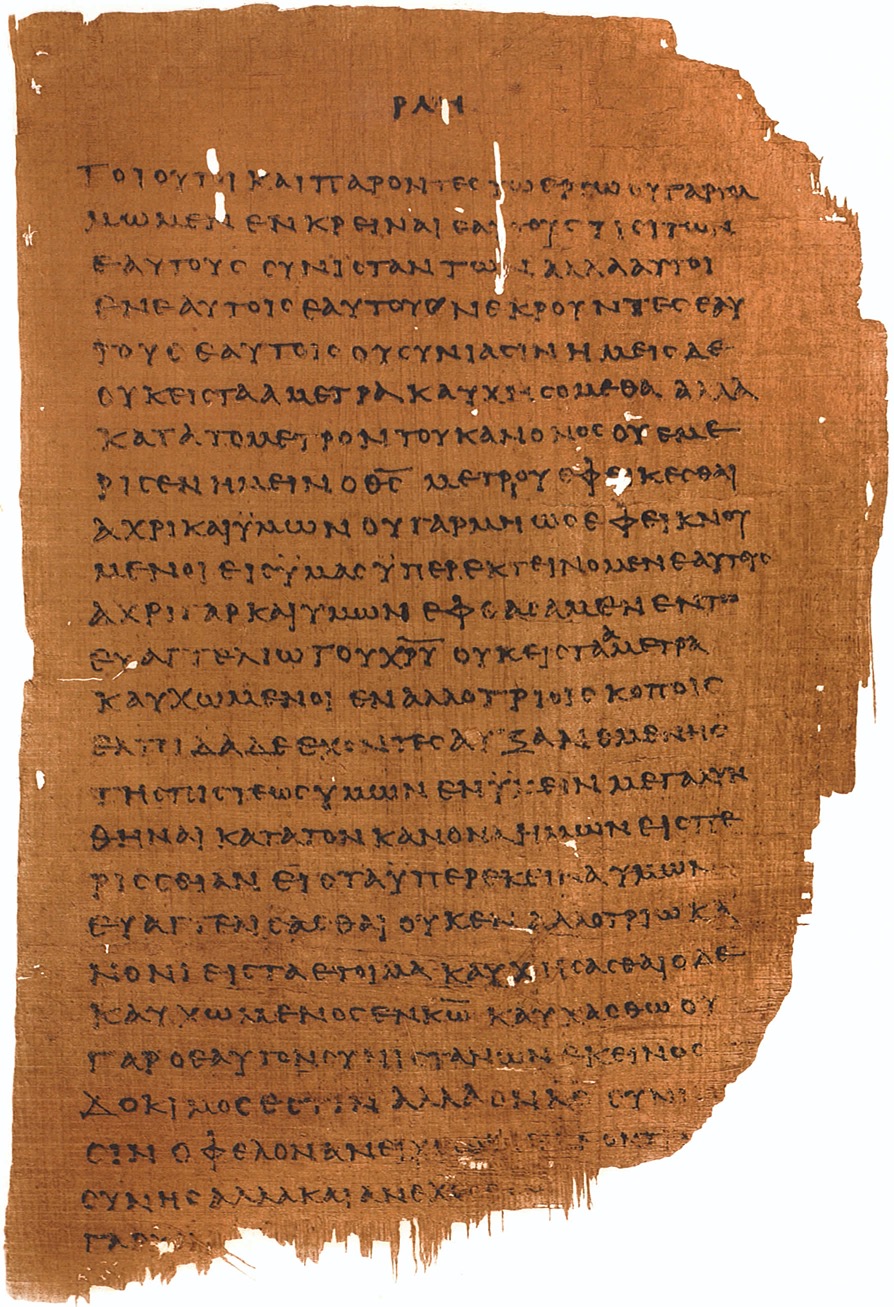 ΡΛΗ
ΤΟΙΟΥΤΟΙ ΚΑΙ ΠΑΡΟΝΤΕϹ ΤΩ ΕΡΓΩ ΟΥ ΓΑΡ
ΜΩΜΕΝ ΕΝΚΡΕΙΝΑΙ ΕΑΥΤΟΥϹ ΤΙϹΙ ΤΩΝ
ΕΑΥΤΟΥϹ ϹΥΝΙϹΤΑΝΤΩΝ ΑΛΛΑ ΑΥΤΟΙ
ΕΝ ΕΑΥΤΟΙϹ ΕΑΥΤΟΥϹ ΝΕΚΡΟΥΝΤΕϹ ΕΑΥ
ΤΟΥϹ ΕΑΥΤΟΙϹ ΟΥ ϹΥΝΙΑϹΙΝ ΗΜΕΙϹ ΔΕ
ΟΥΚ ΕΙϹ ΤΑ ΑΜΕΤΡΑ ΚΑΥΧΗϹΟΜΕΘΑ ΑΛΛΑ
ΚΑΤΑ ΤΟ ΜΕΤΡΟΝ ΤΟΥ ΚΑΝΟΝΟϹ ΟΥ ΕΜΕ
ΡΙϹΕΝ ΗΜΕΙΝ Ο Θ̅Ϲ̅ ΜΕΤΡΟΥ ΕΦΕΙΚΕϹΘΑΙ
ΑΧΡΙ ΚΑΙ ΫΜΩΝ ΟΥ ΓΑΡ ΜΗ ΩϹ ΕΦΕΙΚΝΟΥ
ΜΕΝΟΙ ΕΙϹ ΫΜΑϹ ΫΠΕΡΕΚΤΕΙΝΟΜΕΝ ΕΑΥΤΟΥϹ
ΑΧΡΙ ΓΑΡ ΚΑΙ ΥΜΩΝ ΕΦΘΑϹΑΜΕΝ ΕΝ ΤΩ
ΕΥΑΓΓΕΛΙΩ ΤΟΥ Χ̅Ρ̅Υ̅ ΟΥΚ ΕΙϹ ΤΑ ΑΜΕΤΡΑ
ΚΑΥΧΩΜΕΝΟΙ ΕΝ ΑΛΛΟΤΡΙΟΙϹ ΚΟΠΟΙϹ
ΕΛΠΙΔΑ ΔΕ ΕΧΟΝΤΕϹ ΑΥΞΑΝΟΜΕΝΗϹ
ΤΗϹ ΠΙϹΤΕΩϹ ΥΜΩΝ ΕΝ ΫΜΕΙΝ ΜΕΓΑΛΥΝ
ΘΗΝΑΙ ΚΑΤΑ ΤΟΝ ΚΑΝΟΝΑ ΗΜΩΝ ΕΙϹ ΠΕ
ΡΙϹϹΕΙΑΝ ΕΙϹ ΤΑ ΫΠΕΡΕΚΕΙΝΑ ΥΜΩΝ
ΕΥΑΓΓΕΛΙϹΑϹΘΑΙ ΟΥΚ ΕΝ ΑΛΛΟΤΡΙΩ ΚΑ
ΝΟΝΙ ΕΙϹ ΤΑ ΕΤΟΙΜΑ ΚΑΥΧΗϹΑϹΘΑΙ Ο ΔΕ
ΚΑΥΧΩΜΕΝΟϹ ΕΝ Κ̅Ω̅ ΚΑΥΧΑϹΘΩ ΟΥ
ΓΑΡ Ο ΕΑΥΤΟΝ ϹΥΝΙϹΤΑΝΩΝ ΕΚΕΙΝΟϹ
ΔΟΚΙΜΟϹ ΕϹΤΙΝ ΑΛΛΑ ΟΝ
ϹΙΝ ΟΦΕΛΟΝ ΑΝΕΙΧ
ϹΥΝΗϹ ΑΛΛΑ ΚΑΙ ΑΝΕΧ
ΓΑΡ